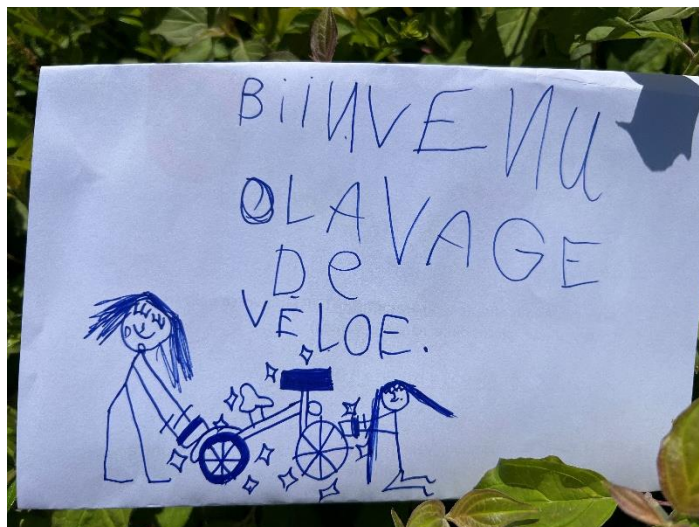 BiiNVENU
OLAVAGE
De
VÉLOE.